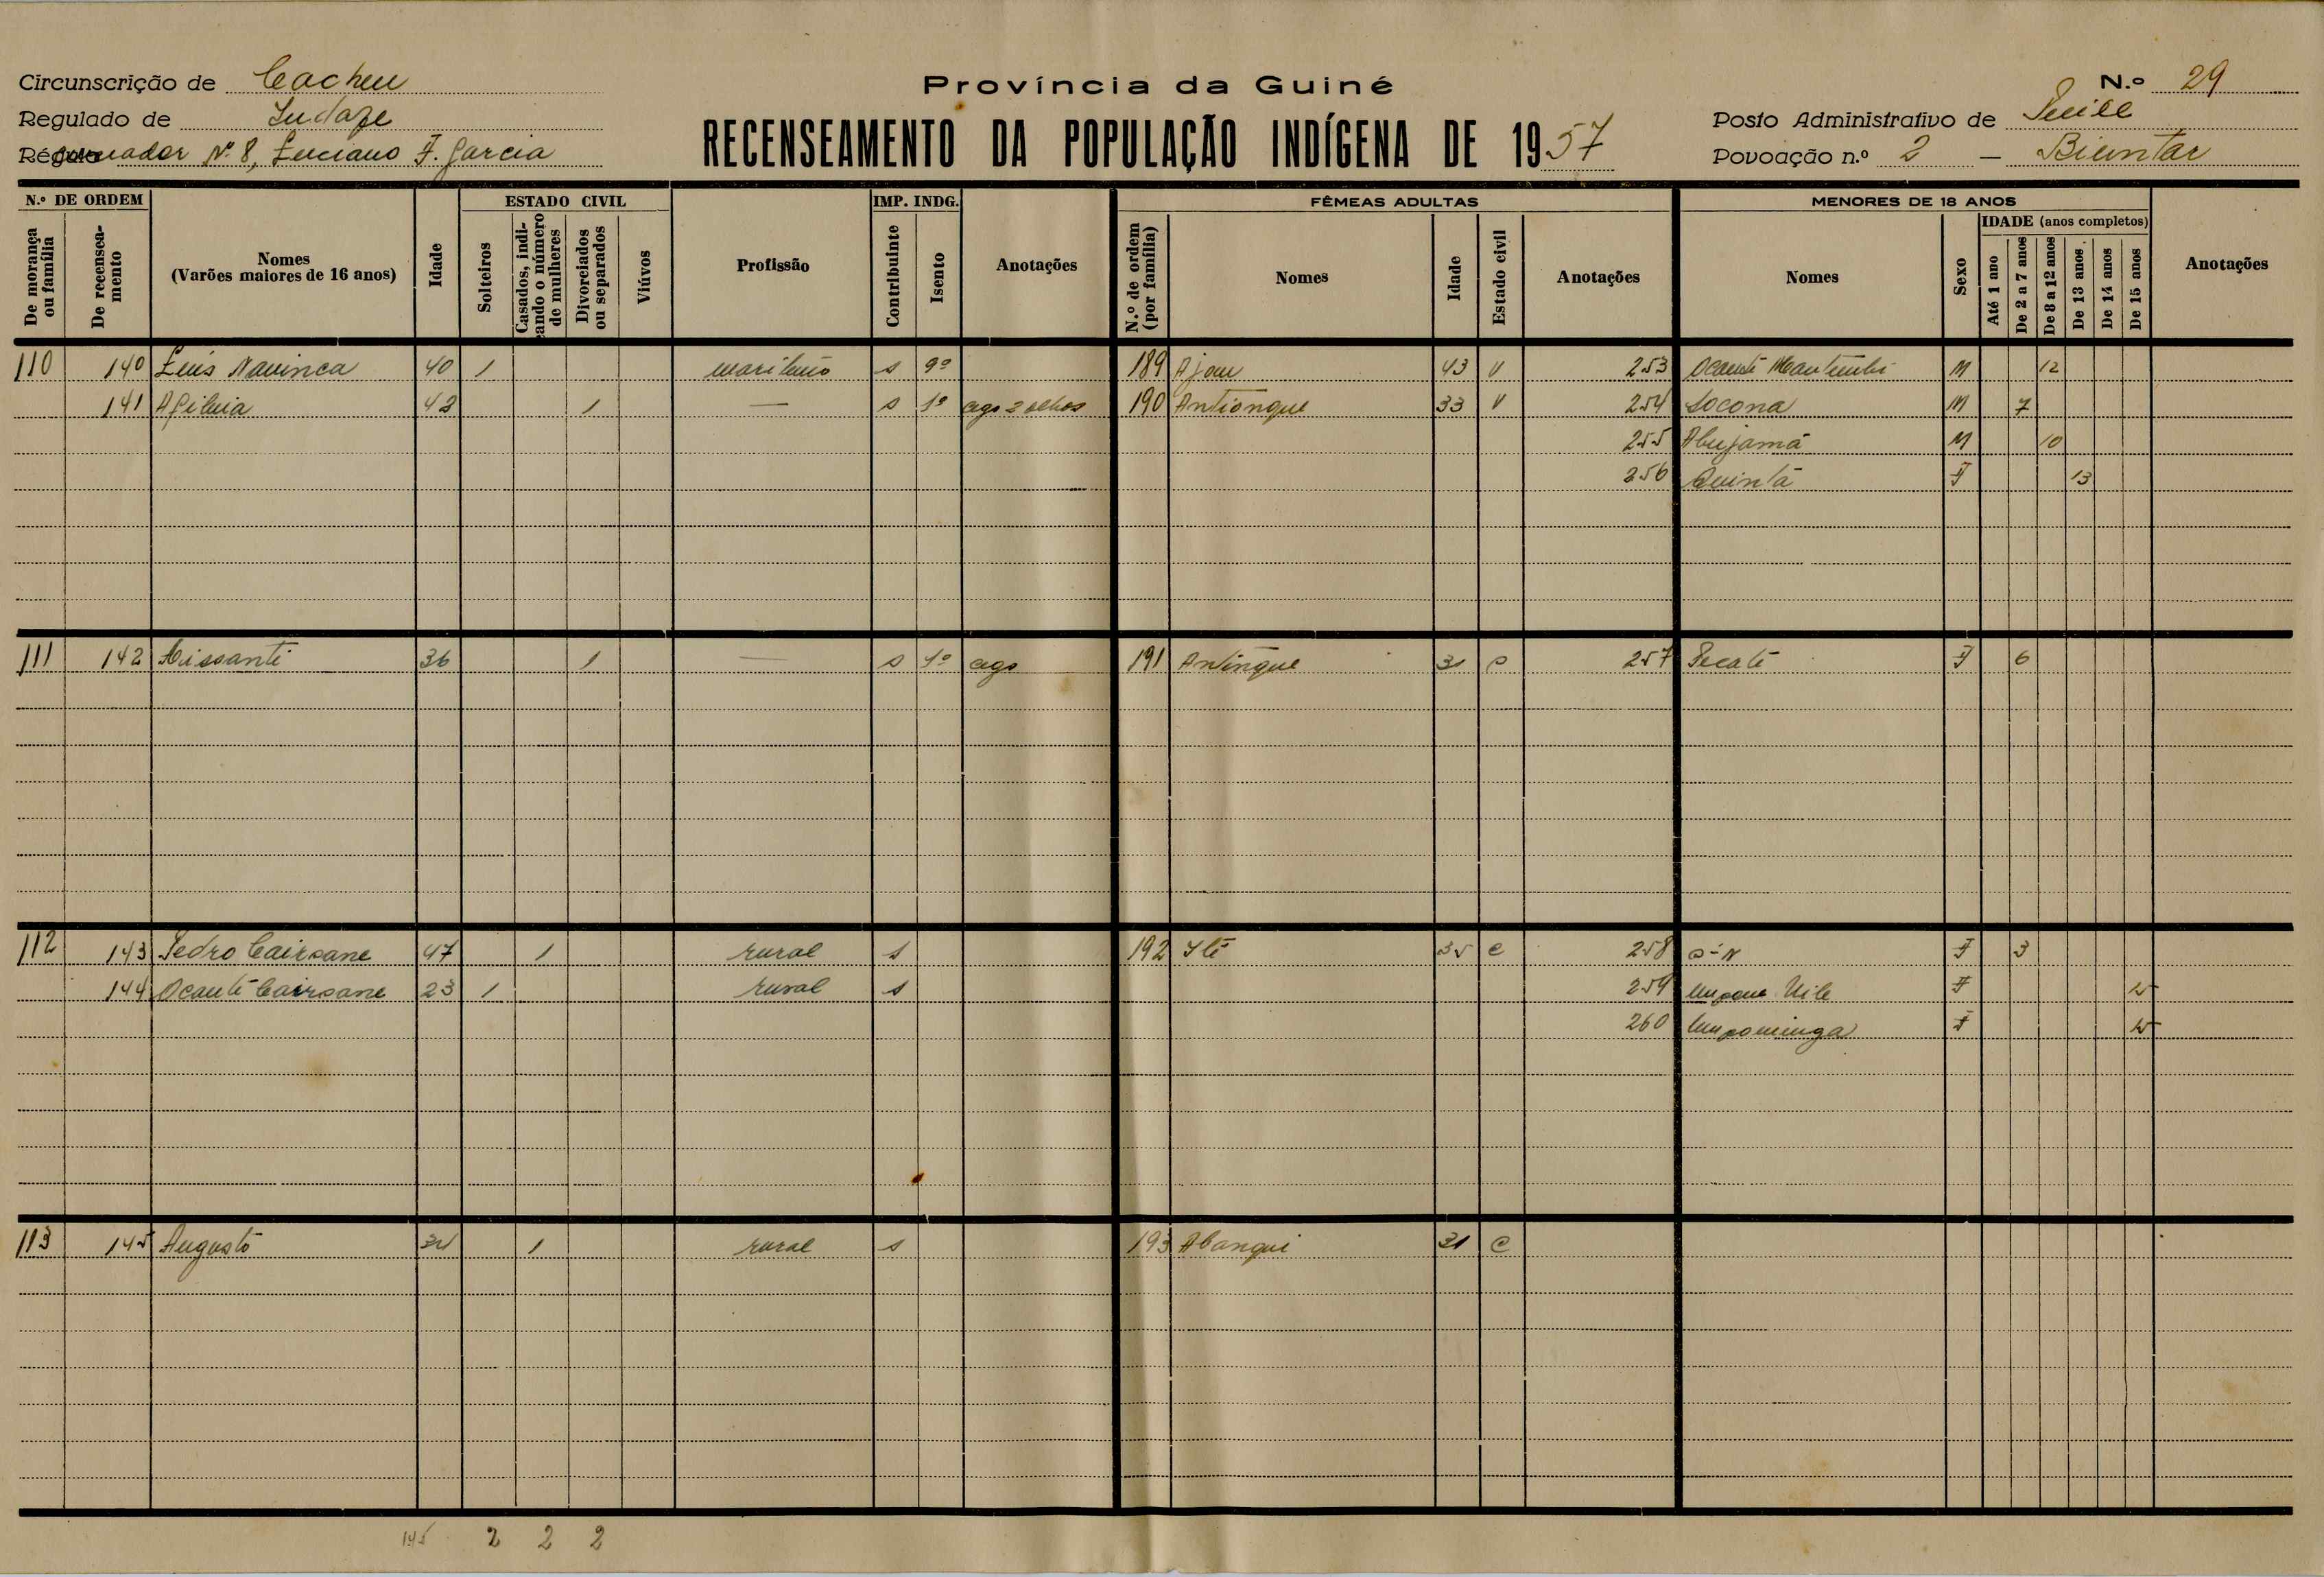 Circunscrição de Cacheu
Província da Guiné
N.º 29
Regulado de
RECENSEAMENTO DA POPULAÇÃO INDÍGENA DE 1957
Posto Administrativo de
Nº 8, Luciano F. Garcia
Povoação n.º 2 — Biantar
N.º DE ORDEM
ESTADO CIVIL
IMP. INDG.
FÊMEAS ADULTAS
MENORES DE 18 ANOS
IDADE (anos completos)
De morança ou família
De recenseamento
Nomes
(Varões maiores de 16 anos)
Idade
Solteiros
Casados, indicando o número de mulheres
Divorciados ou separados
Viúvos
Profissão
Contribuinte
Isento
Anotações
N.º de ordem (por família)
Nomes
Idade
Estado civil
Anotações
Nomes
Sexo
Até 1 ano
De 2 a 7 anos
De 8 a 12 anos
De 13 anos
De 14 anos
De 15 anos
Anotações
110 140 Luis Nauinca 40 1 s 9º 189 Ajou 43 V 253 Ocanté M 12
141 1 s 1º cego 2 olhos 190 Antiongue 33 V 254 Socona M 7
255 Abujamá M 10
256 Quintá F 13
111 142 36 1 — s 1º cego 191 Antingue 31 257 F 6
112 143 Pedro Cairsane 47 1 rural s 192 Ité 35 C 258 F 3
144 Ocanté Cairsane 23 1 rural s 259 F 15
260 F 15
113 145 Augusto 1 rural s 193 Abanqui 31 C
145 2 2 2